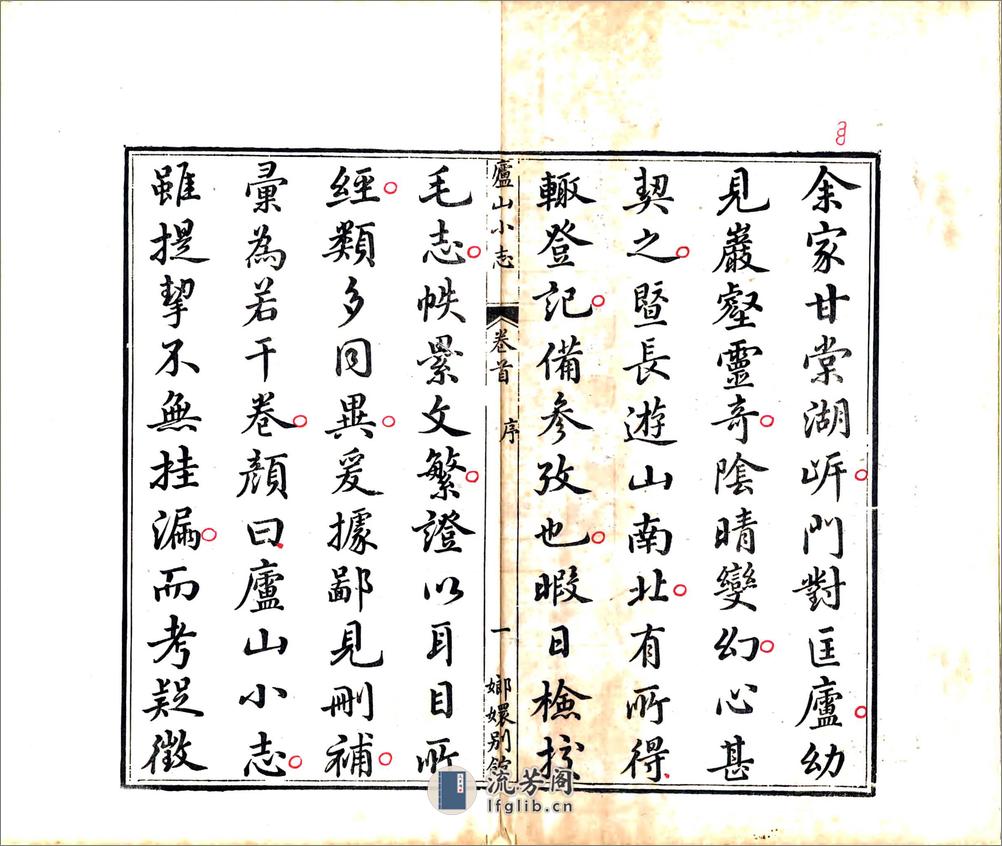 余家甘棠湖岸門對匡廬幼
見巖壑靈奇陰晴變幻心甚
契之暨長遊山南北有所得
輙登記備參攷也暇日檢挍
廬山小志 卷首 序 一 嫏嬛別館
毛志帙累文繁證以耳目所
經類多同異爰據鄙見刪補
彙為若干卷顏曰廬山小志
雖提挈不無挂漏而考疑徵
流芳阁
lfglib.cn